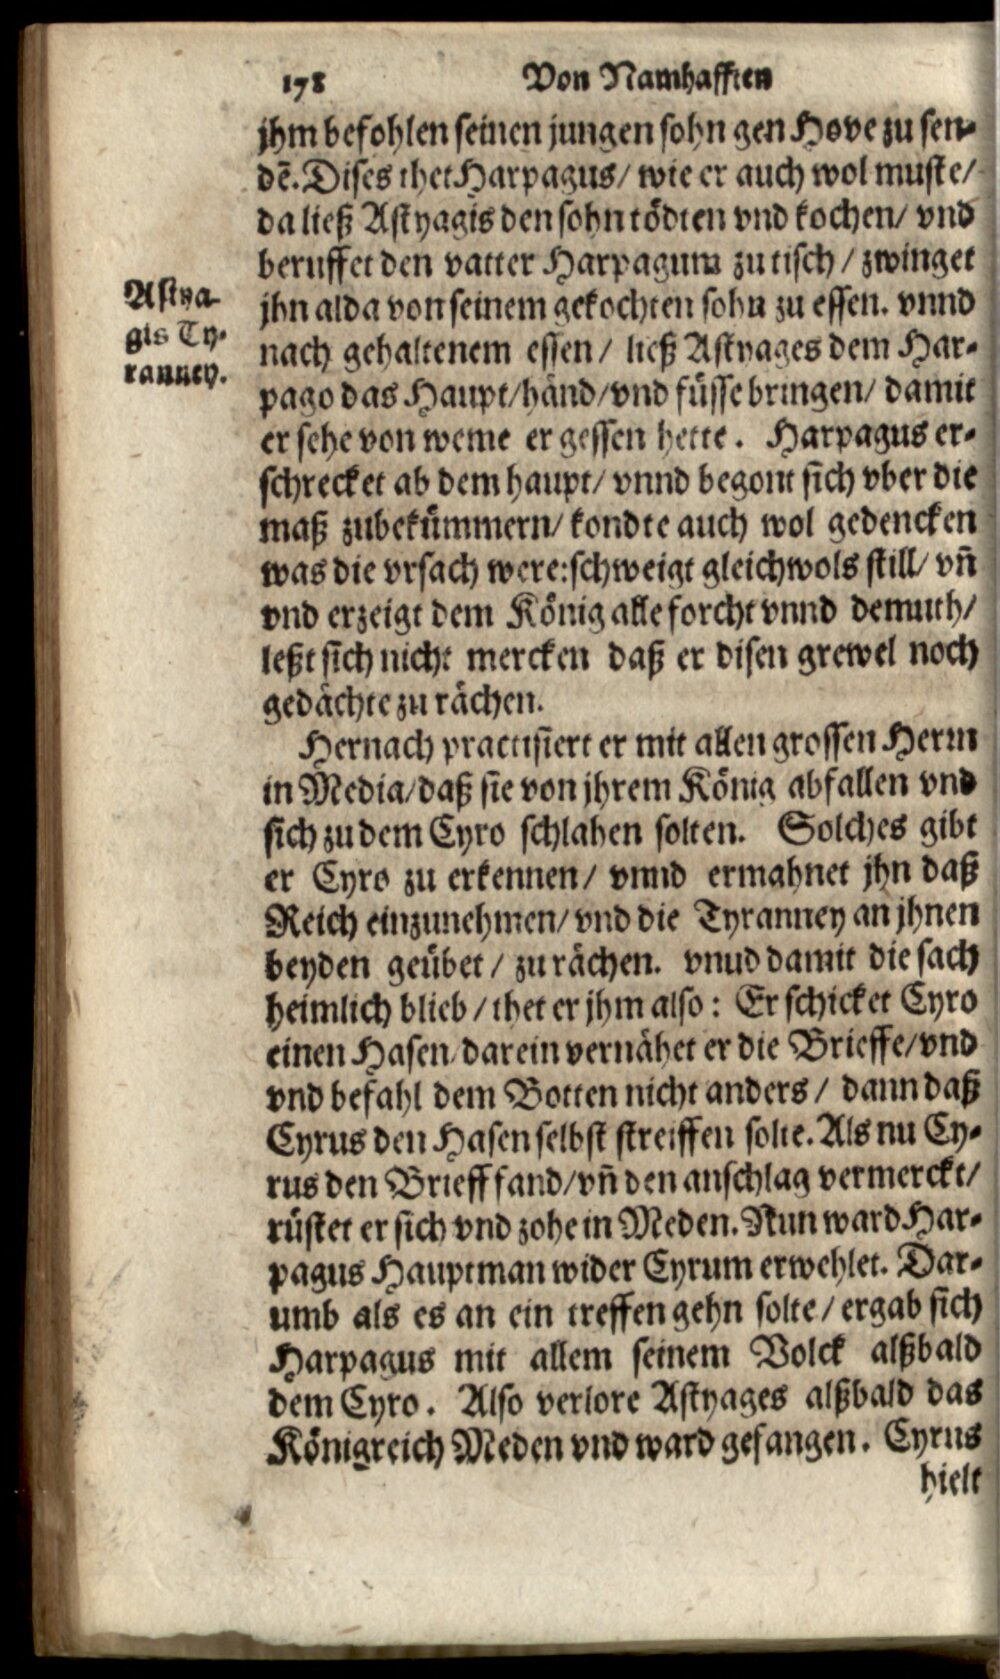 178 Von Namhafften
jhm befohlen seinen jungen sohn gen Hove zu sen-
dē. Dises thet Harpagus/ wie er auch wol muste/
da ließ Astyagis den sohn tödten vnd kochen/ vnd
beruffet den vatter Harpagum zu tisch/ zwinget
jhn alda von seinem gekochten sohn zu essen. vnnd
Astya-
gis Ty-
ranney.
nach gehaltenem essen/ ließ Astyages dem Har-
pago das Haupt/händ/vnd füsse bringen/ damit
er sehe von weme er gessen hette. Harpagus er-
schrecket ab dem haupt/ vnnd begont sich vber die
maß zubekümmern/ kondte auch wol gedencken
was die vrsach were: schweigt gleichwols still/ vn̄
vnd erzeigt dem König alle forcht vnnd demuth/
leßt sich nicht mercken daß er disen grewel noch
gedächte zu rächen.
Hernach practisiert er mit allen grossen Herrn
in Media/daß sie von jhrem König abfallen vnd
sich zu dem Cyro schlahen solten. Solches gibt
er Cyro zu erkennen/ vnnd ermahnet jhn daß
Reich einzunehmen/ vnd die Tyranney an jhnen
beyden geübet/ zu rächen. vnud damit die sach
heimlich blieb/ thet er jhm also: Er schicket Cyro
einen Hasen/ darein vernähet er die Brieffe/vnd
vnd befahl dem Botten nicht anders/ dann daß
Cyrus den Hasen selbst streiffen solte. Als nu Cy-
rus den Brieff fand/vn̄ den anschlag vermerckt/
rüstet er sich vnd zohe in Meden. Nun ward Har-
pagus Hauptman wider Cyrum erwehlet. Dar-
umb als es an ein treffen gehn solte/ ergab sich
Harpagus mit allem seinem Volck alßbald
dem Cyro. Also verlore Astyages alßbald das
Königreich Meden vnd ward gefangen. Cyrus
hielt